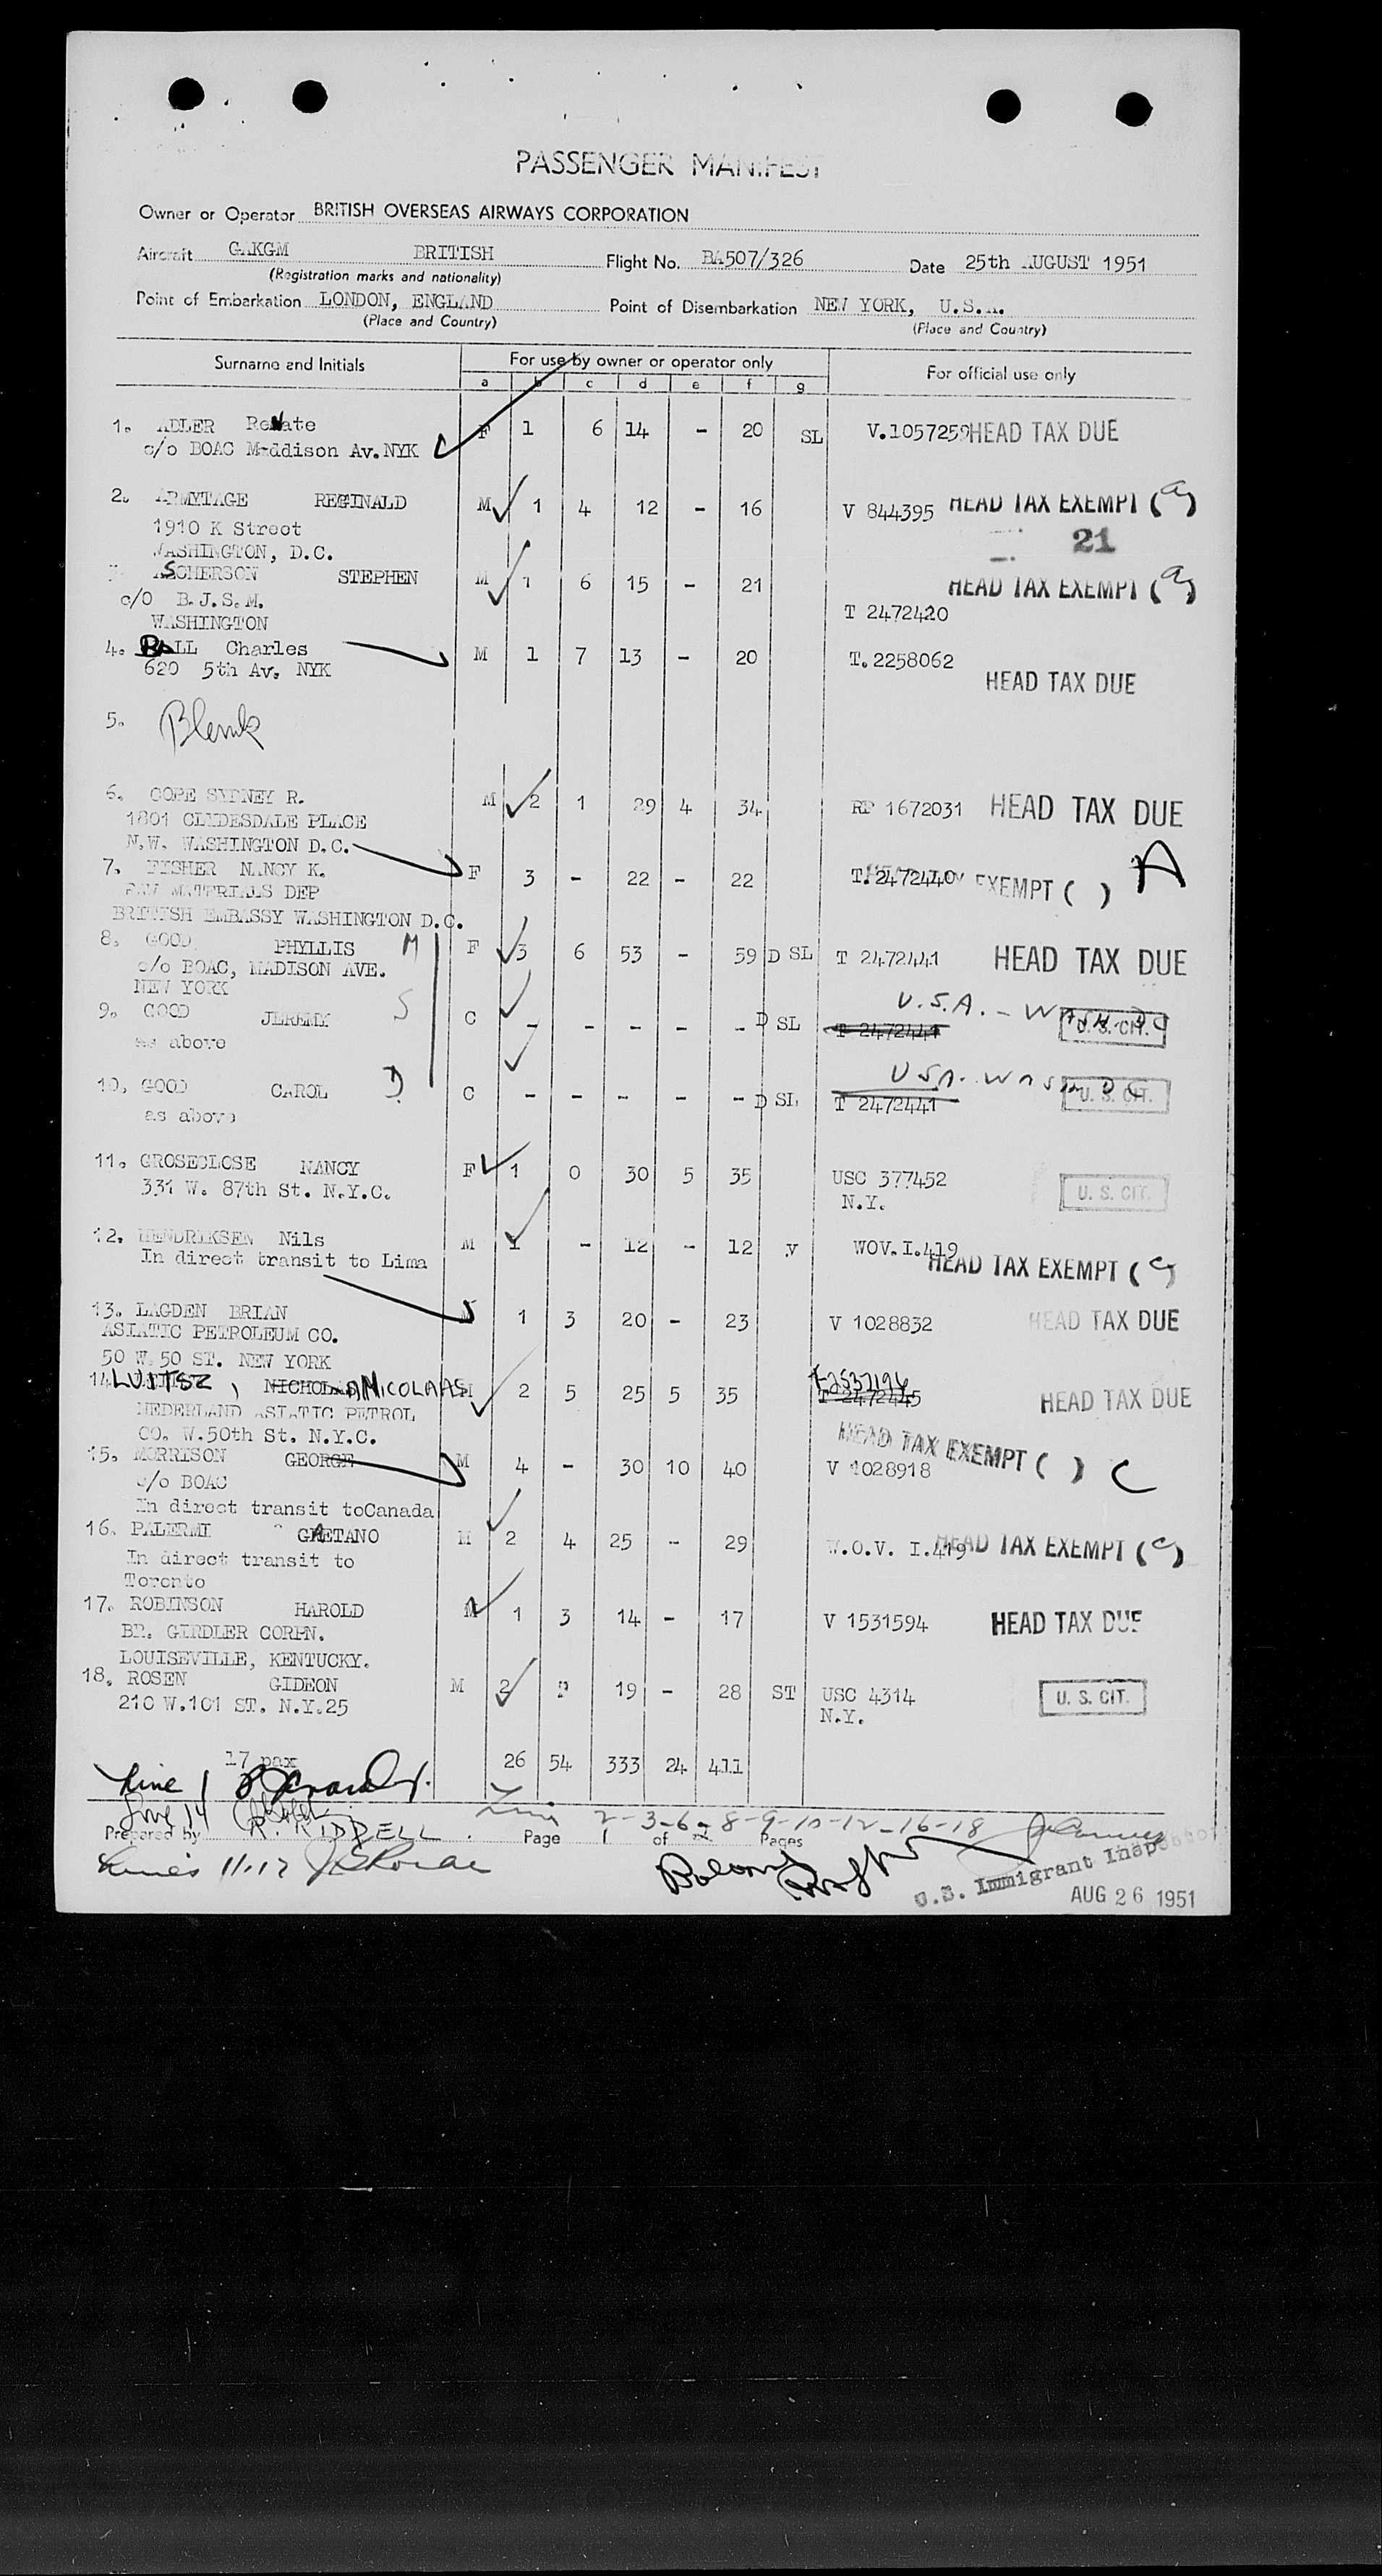 PASSENGER MANIFEST
Owner or Operator BRITISH OVERSEAS AIRWAYS CORPORATION
Aircraft GAKGM BRITISH Flight No. BA507/326 Date 25th AUGUST 1951
(Registration marks and nationality)
Point of Embarkation LONDON, ENGLAND Point of Disembarkation NEW YORK, U.S.A.
(Place and Country) (Place and Country)
Surname and Initials For use by owner or operator only For official use only
a b c d e f g
1. ADLER Renate F 1 6 14 - 20 SL V.1057259 HEAD TAX DUE
c/o BOAC Maddison Av. NYK
2. ARMYTAGE REGINALD M 1 4 12 - 16 V 844395 HEAD TAX EXEMPT (a)
1910 K Street 21
WASHINGTON, D.C.
ASCHERSON STEPHEN M 1 6 15 - 21 HEAD TAX EXEMPT (a)
c/o B.J.S.M. T 2472420
WASHINGTON
4. BALL Charles M 1 7 13 - 20 T.2258062
620 5th Av. NYK HEAD TAX DUE
5. Blank
6. COPE SYDNEY R. M 2 1 29 4 34 RP 1672031 HEAD TAX DUE
1801 CLYDESDALE PLACE
N.W. WASHINGTON D.C.
7. FISHER NANCY K. F 3 - 22 - 22 T.2472440 EXEMPT ( ) A
RAW MATERIALS DEP
BRITISH EMBASSY WASHINGTON D.C.
8. GOOD PHYLLIS M F 3 6 53 - 59 D SL T 2472441 HEAD TAX DUE
c/o BOAC, MADISON AVE.
NEW YORK
9. GOOD JEREMY S C - - - - - D SL T 2472441 U.S.A. - WASH DC U. S. CIT.
as above
10. GOOD CAROL D. C - - - - - D SL T 2472441 USA. WASH DC U. S. CIT.
as above
11. GROSECLOSE NANCY F 1 0 30 5 35 USC 377452 U. S. CIT.
331 W. 87th St. N.Y.C. N.Y.
12. HENDRIKSEN Nils M 1 - 12 - 12 V WOV.I.419 HEAD TAX EXEMPT (c)
In direct transit to Lima
13. LAGDEN BRIAN M 1 3 20 - 23 V 1028832 HEAD TAX DUE
ASIATIC PETROLEUM CO.
50 W. 50 ST. NEW YORK
14. LUITSZ, NICOLAAS M 2 5 25 5 35 T-2537196 T 2472445 HEAD TAX DUE
NEDERLAND ASIATIC PETROL
CO. W.50th St. N.Y.C.
15. MORRISON GEORGE M 4 - 30 10 40 V 1028918 HEAD TAX EXEMPT ( ) C
c/o BOAC
In direct transit toCanada
16. PALERMI GAETANO M 2 4 25 - 29 W.O.V. I.419 HEAD TAX EXEMPT (c)
In direct transit to
Toronto
17. ROBINSON HAROLD M 1 3 14 - 17 V 1531594 HEAD TAX DUE
BR. GIRDLER CORPN.
LOUISEVILLE, KENTUCKY.
18. ROSEN GIDEON M 2 19 - 28 ST USC 4314 U. S. CIT.
210 W.101 ST. N.Y.25 N.Y.
17 pax 26 54 333 24 411
Line 1
Line 14 Line 2-3-6-8-9-10-12-16-18
Prepared by R. RIDDELL. Page 1 of Pages
Lines 11.17
U.S. Immigrant Inspector
AUG 26 1951